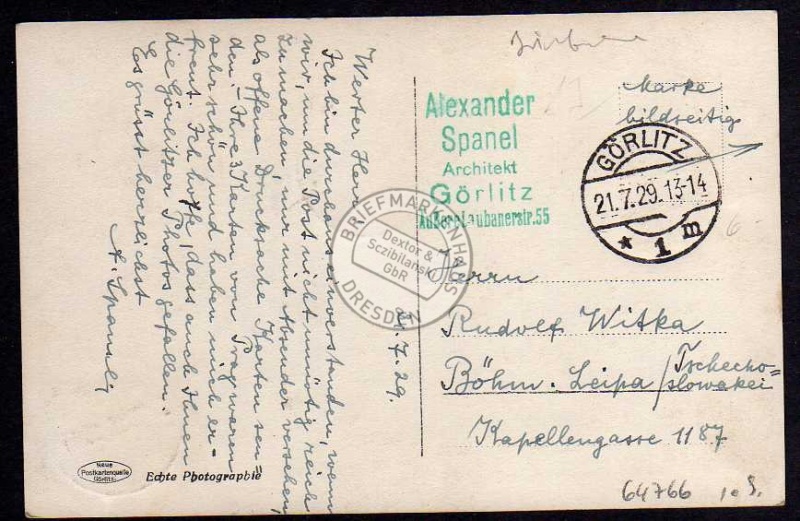 Werter Herr
Ich bin durchaus einverstanden, wenn
wir, um die Post nicht unnötig reich
zu machen, nur mit Absender versehen,
als offene Drucksache Karten sen=
den. Ihre 3 Karten von Prag waren
sehr schön und haben mich er-
freut. Ich hoffe, dass auch Ihnen
die Görlitzer Photos gefallen.
Es grüsst herzlichst
A. Spanel
21.7.29.
Alexander
Spanel
Architekt
Görlitz
Äußere Laubanerstr. 55
Marke
bildseitig
GÖRLITZ
21.7.29.13-14
* 1 m
Herrn
Rudolf Witka
Böhm. Leipa / Tschecho=
slowakei
Kapellengasse 1187
BRIEFMARKENHAUS
Dextor &
Sczibilanski
GbR
DRESDEN
Neue
Postkartenquelle
Echte Photographie
64766